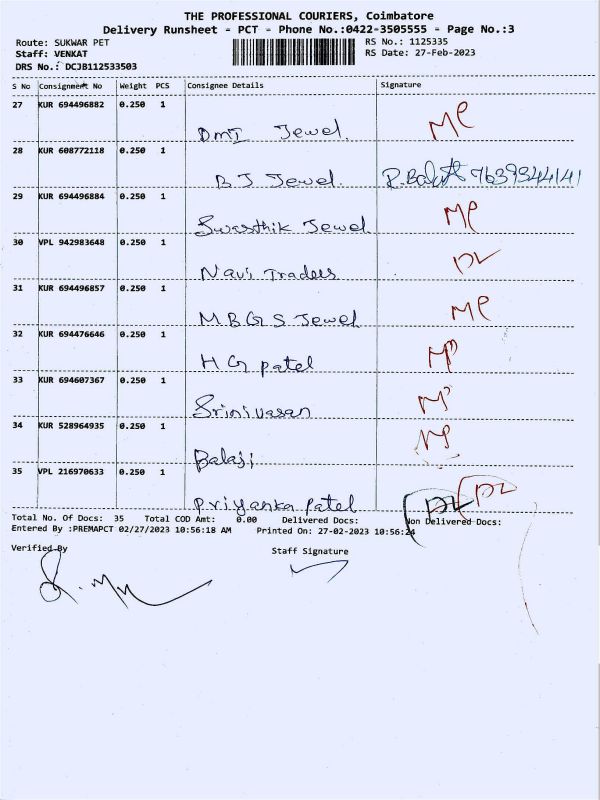 THE PROFESSIONAL COURIERS, Coimbatore
Delivery Runsheet - PCT - Phone No.:0422-3505555 - Page No.:3
Route: SUKWAR PET RS No.: 1125335
Staff: VENKAT RS Date: 27-Feb-2023
DRS No.: DCJB112533503
S No Consignment No Weight PCS Consignee Details Signature
27 KUR 694496882 0.250 1 DMI Jewel MP
28 KUR 608772118 0.250 1 B J Jewel 7639344141
29 KUR 694496884 0.250 1 Swasthik Jewel MP
30 VPL 942983648 0.250 1 Navi Traders DL
31 KUR 694496857 0.250 1 M B G S Jewel MP
32 KUR 694476646 0.250 1 H G patel
33 KUR 694607367 0.250 1 Srinivasan
34 KUR 528964935 0.250 1 Balaji
35 VPL 216970633 0.250 1 Priyanka Patel DL DL
Total No. Of Docs: 35 Total COD Amt: 0.00 Delivered Docs: Non Delivered Docs:
Entered By :PREMAPCT 02/27/2023 10:56:18 AM Printed On: 27-02-2023 10:56:24
Verified By Staff Signature